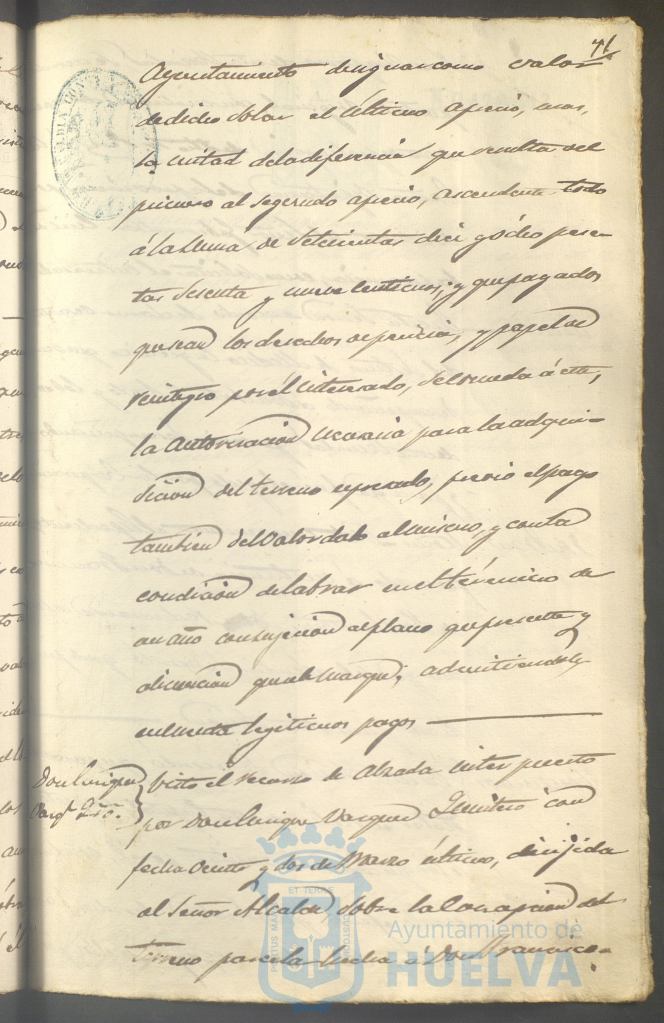 71
Ayuntamiento designar como valor
de dicho Solar el último aprecio, mas,
la mitad de la diferencia que resulta del
primero al segundo aprecio, ascendente todo
á la suma de Setecientas diez y ocho pese-
tas sesenta y nueve centimos; y que pagados
que sean los derechos de pericia, y papel de
reintegro por el interesado, se conceda á este,
la autorización necesaria para la adqui-
sición del terreno expresado, previo el pago
tambien del valor dado al mismo, y con la
condición de labrar en el término de
un año con sujeción al plano que presente y
alineación que se le marque; admitiendole
en cuenta legitimos pagos
Don Enrique
Vazqz Qro.
Visto el recurso de Alzada interpuesto
por Don Enrique Vazquez Quintero con
fecha veinte y dos de Marzo último, dirijida
al Señor Alcalde sobre la Concepcion del
terreno parcela hecha á Don Francisco
ET TERRE
PORTUS MARIS
CUSTODIA
Ayuntamiento de
HUELVA